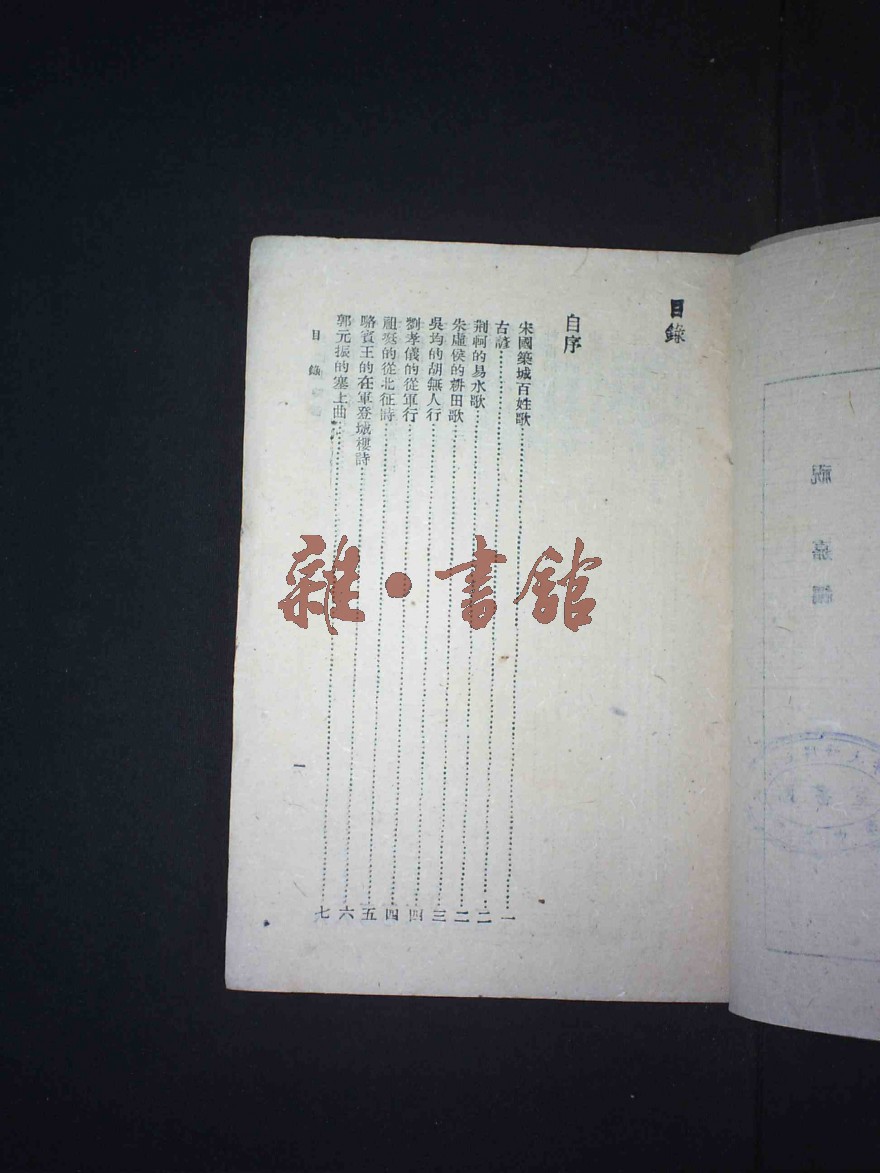 目錄
自序
宋國築城百姓歌……一
古諺……二
荆軻的易水歌……二
朱虛侯的耕田歌……三
吳均的胡無人行……四
劉孝儀的從軍行……四
祖珽的從北征詩……五
駱賓王的在軍登城樓詩……六
郭元振的塞上曲……七
目錄
一
雜·書館
祝嘉編